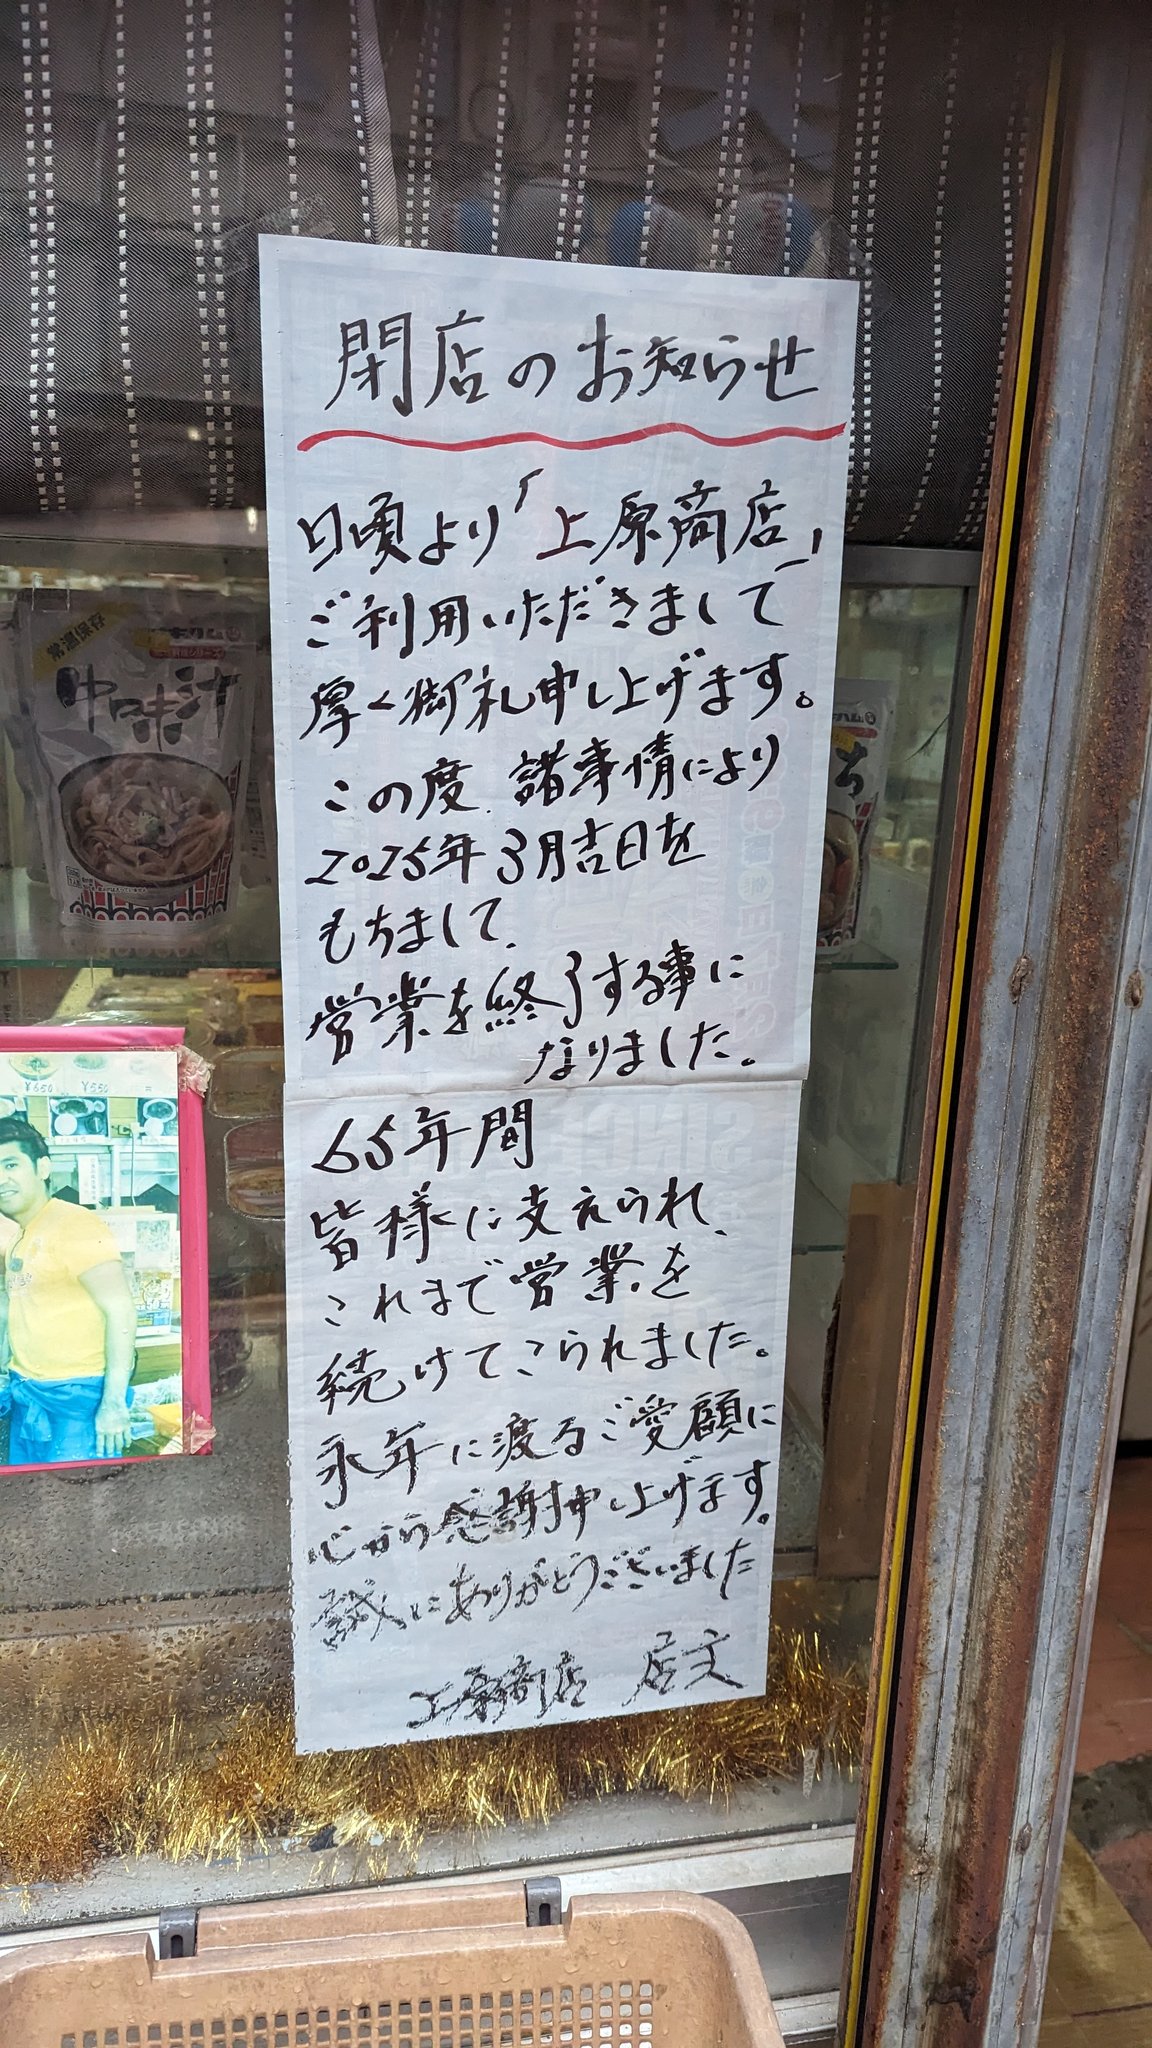 閉店のお知らせ
日頃より「上原商店」
ご利用いただきまして
厚く御礼申し上げます。
この度、諸事情により
2025年3月吉日を
もちまして、
営業を終了する事に
なりました。
65年間
皆様に支えられ、
これまで営業を
続けてこられました。
永年に渡るご愛顧に
心から感謝申し上げます。
誠にありがとうございました
上原商店 店主
常温保存
中味汁
¥650 ¥550